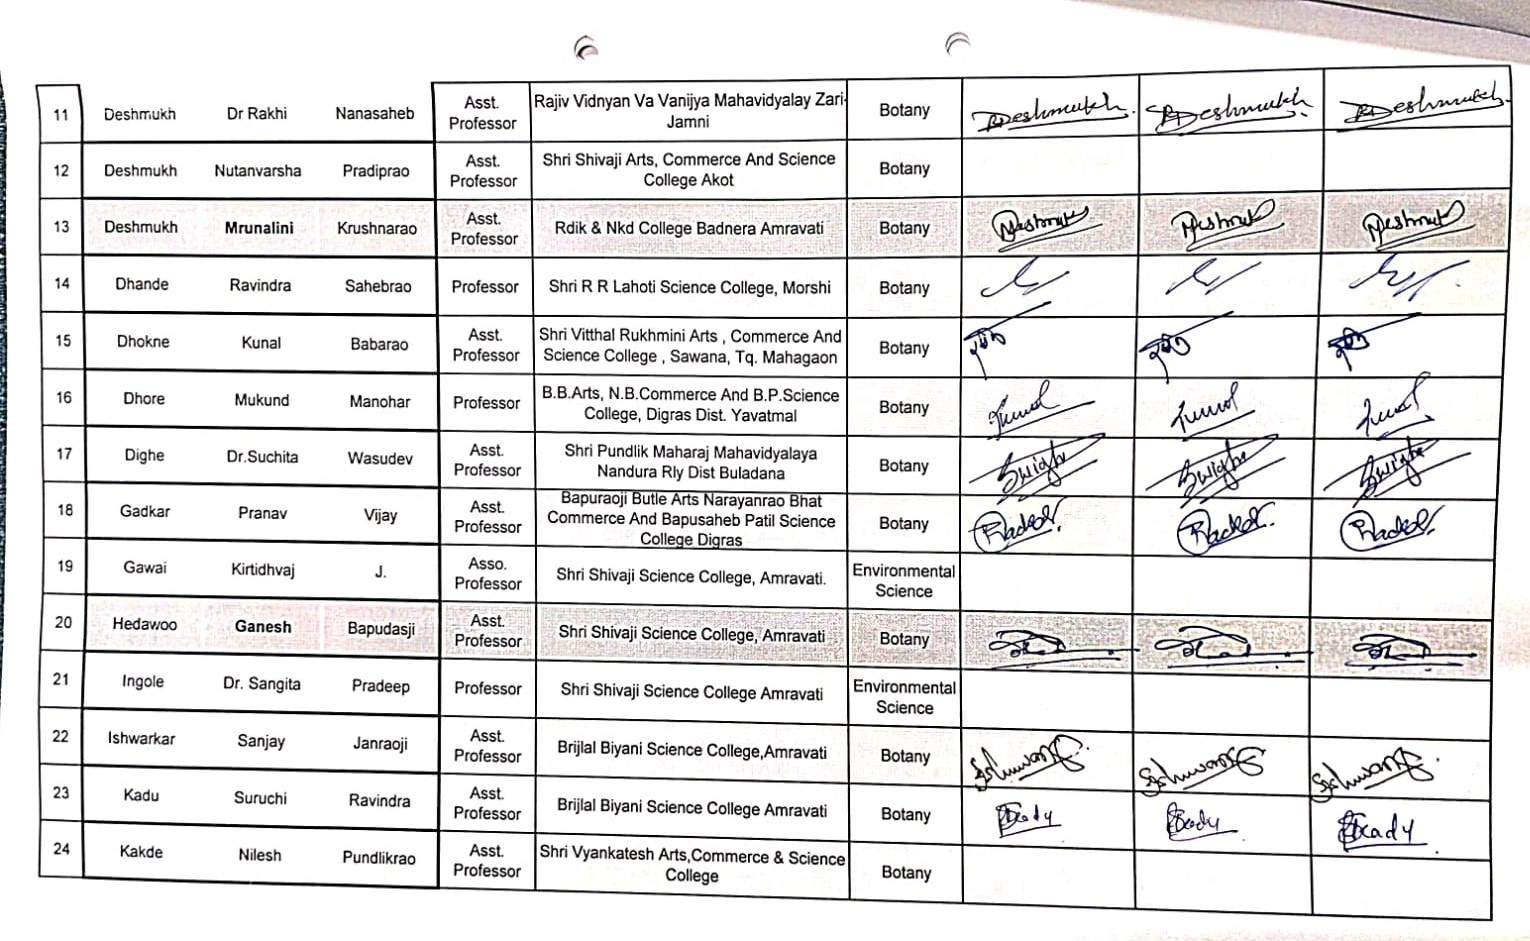 11 Deshmukh Dr Rakhi Nanasaheb Asst. Professor Rajiv Vidnyan Va Vanijya Mahavidyalay Zari-Jamni Botany RDeshmukh. RDeshmukh. RDeshmukh.
12 Deshmukh Nutanvarsha Pradiprao Asst. Professor Shri Shivaji Arts, Commerce And Science College Akot Botany
13 Deshmukh Mrunalini Krushnarao Asst. Professor Rdik & Nkd College Badnera Amravati Botany
14 Dhande Ravindra Sahebrao Professor Shri R R Lahoti Science College, Morshi Botany
15 Dhokne Kunal Babarao Asst. Professor Shri Vitthal Rukhmini Arts , Commerce And Science College , Sawana, Tq. Mahagaon Botany
16 Dhore Mukund Manohar Professor B.B.Arts, N.B.Commerce And B.P.Science College, Digras Dist. Yavatmal Botany
17 Dighe Dr.Suchita Wasudev Asst. Professor Shri Pundlik Maharaj Mahavidyalaya Nandura Rly Dist Buladana Botany
18 Gadkar Pranav Vijay Asst. Professor Bapuraoji Butle Arts Narayanrao Bhat Commerce And Bapusaheb Patil Science College Digras Botany
19 Gawai Kirtidhvaj J. Asso. Professor Shri Shivaji Science College, Amravati. Environmental Science
20 Hedawoo Ganesh Bapudasji Asst. Professor Shri Shivaji Science College, Amravati Botany
21 Ingole Dr. Sangita Pradeep Professor Shri Shivaji Science College Amravati Environmental Science
22 Ishwarkar Sanjay Janraoji Asst. Professor Brijlal Biyani Science College,Amravati Botany
23 Kadu Suruchi Ravindra Asst. Professor Brijlal Biyani Science College Amravati Botany
24 Kakde Nilesh Pundlikrao Asst. Professor Shri Vyankatesh Arts,Commerce & Science College Botany